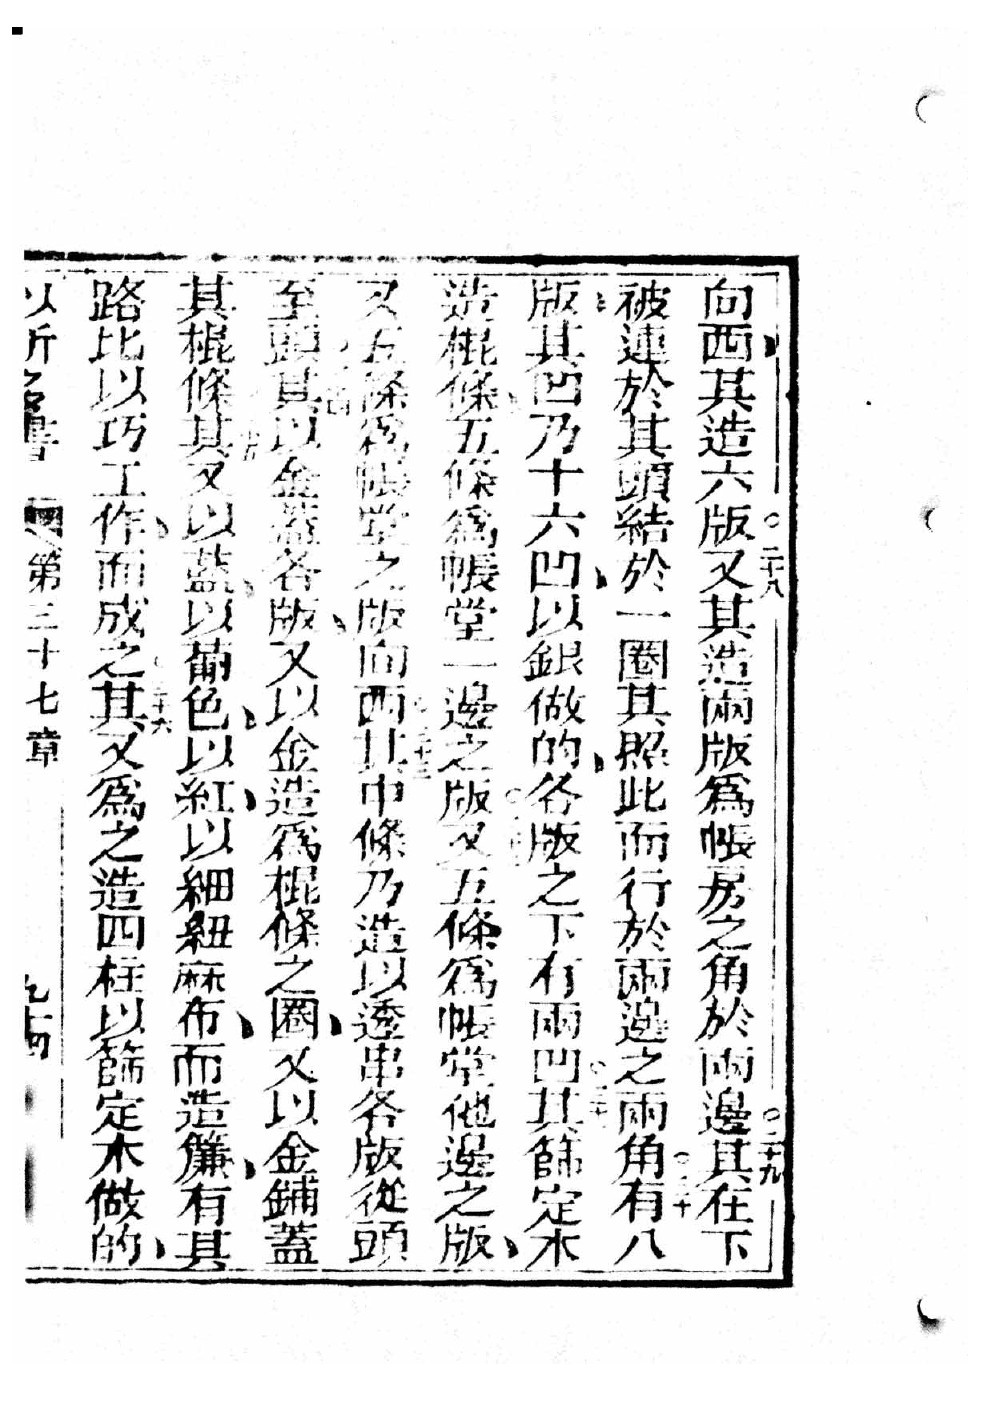 向西其造六版又其造兩版爲帳房之角於兩邊其在下
○二十八
○二十九
被連於其頭結於一圈其照此而行於兩邊之兩角有八
○三十
版其凹乃十六凹以銀做的各版之下有兩凹其篩定木
造棍條五條爲帳堂一邊之版又五條爲帳堂他邊之版
又五條爲帳堂之版向西其中條乃造以透串各版從頭
○三十三
至頭其以金蓋各版又以金造爲棍條之圈又以金鋪蓋
其棍條其又以藍以葡色以紅以細紐麻布而造簾有其
路比以巧工作而成之其又爲之造四柱以篩定木做的
○三十六
以所多書 第三十七章 九十四